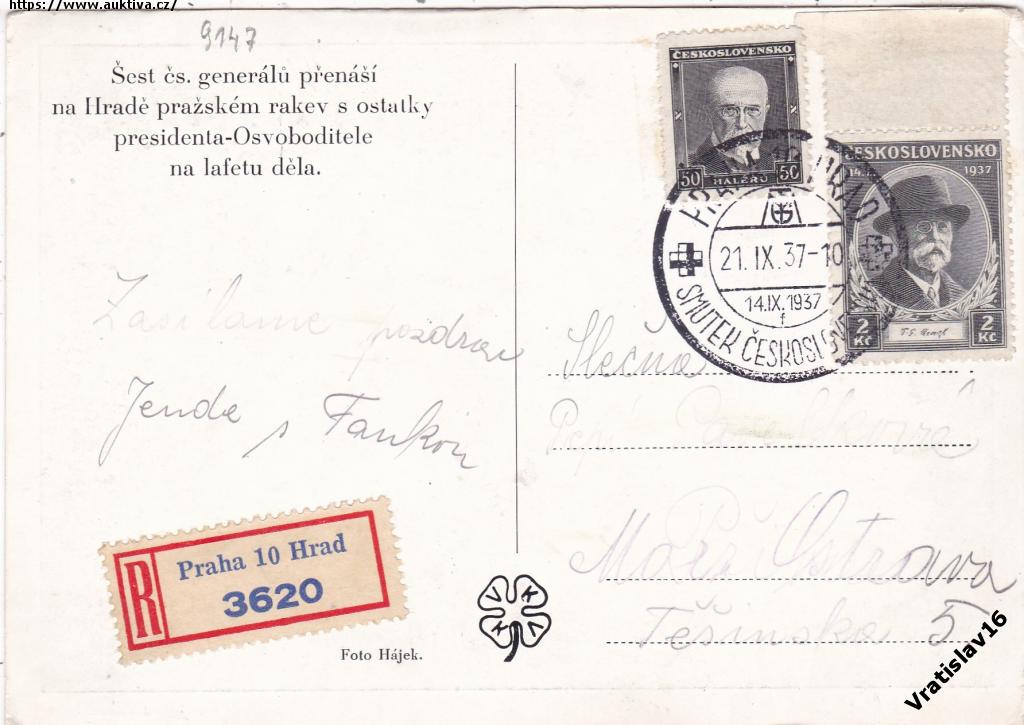 https://www.auktiva.cz/
9147
Šest čs. generálů přenáší
na Hradě pražském rakev s ostatky
presidenta-Osvoboditele
na lafetu děla.
ČESKOSLOVENSKO
50 HALÉŘŮ 50
ČESKOSLOVENSKO
14.IX. 1937
2 KČ 2 KČ
PRAHA HRAD
21.IX.37-10
14.IX.1937
f
SMUTEK ČESKOSLOVENSKA
Zasílame pozdrav
Jenda s Fankou
Slečna
Mor. Ostrava
Těšinska 5
R
Praha 10 Hrad
3620
Foto Hájek.
V K K V
Vratislav16